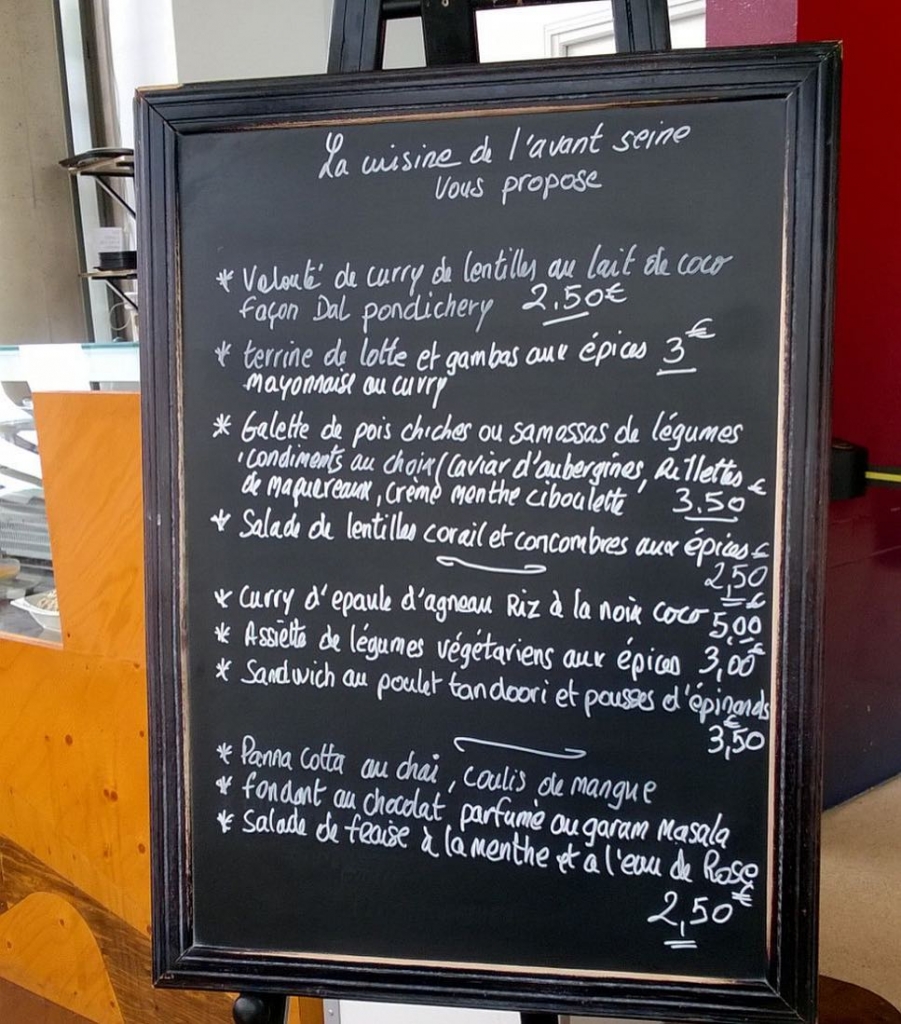 La cuisine de l'avant seine
Vous propose
* Velouté de curry de lentilles au lait de coco
façon Dal pondichery 2.50€
* terrine de lotte et gambas aux épices 3€
mayonnaise au curry
* Galette de pois chiches ou samossas de légumes
condiments au choix (Caviar d'aubergines, Rillettes
de maquereaux, crème menthe ciboulette 3.50€
* Salade de lentilles corail et concombres aux épices
2,50€
* Curry d'epaule d'agneau Riz à la noix coco 5,00€
* Assiette de légumes végétariens aux épices 3,00€
* Sandwich au poulet tandoori et pousses d'épinards
3,50€
* Panna Cotta au chai, coulis de mangue
* fondant au chocolat parfumé au garam Masala
* Salade de fraise à la menthe et a l'eau de Rose
2,50€